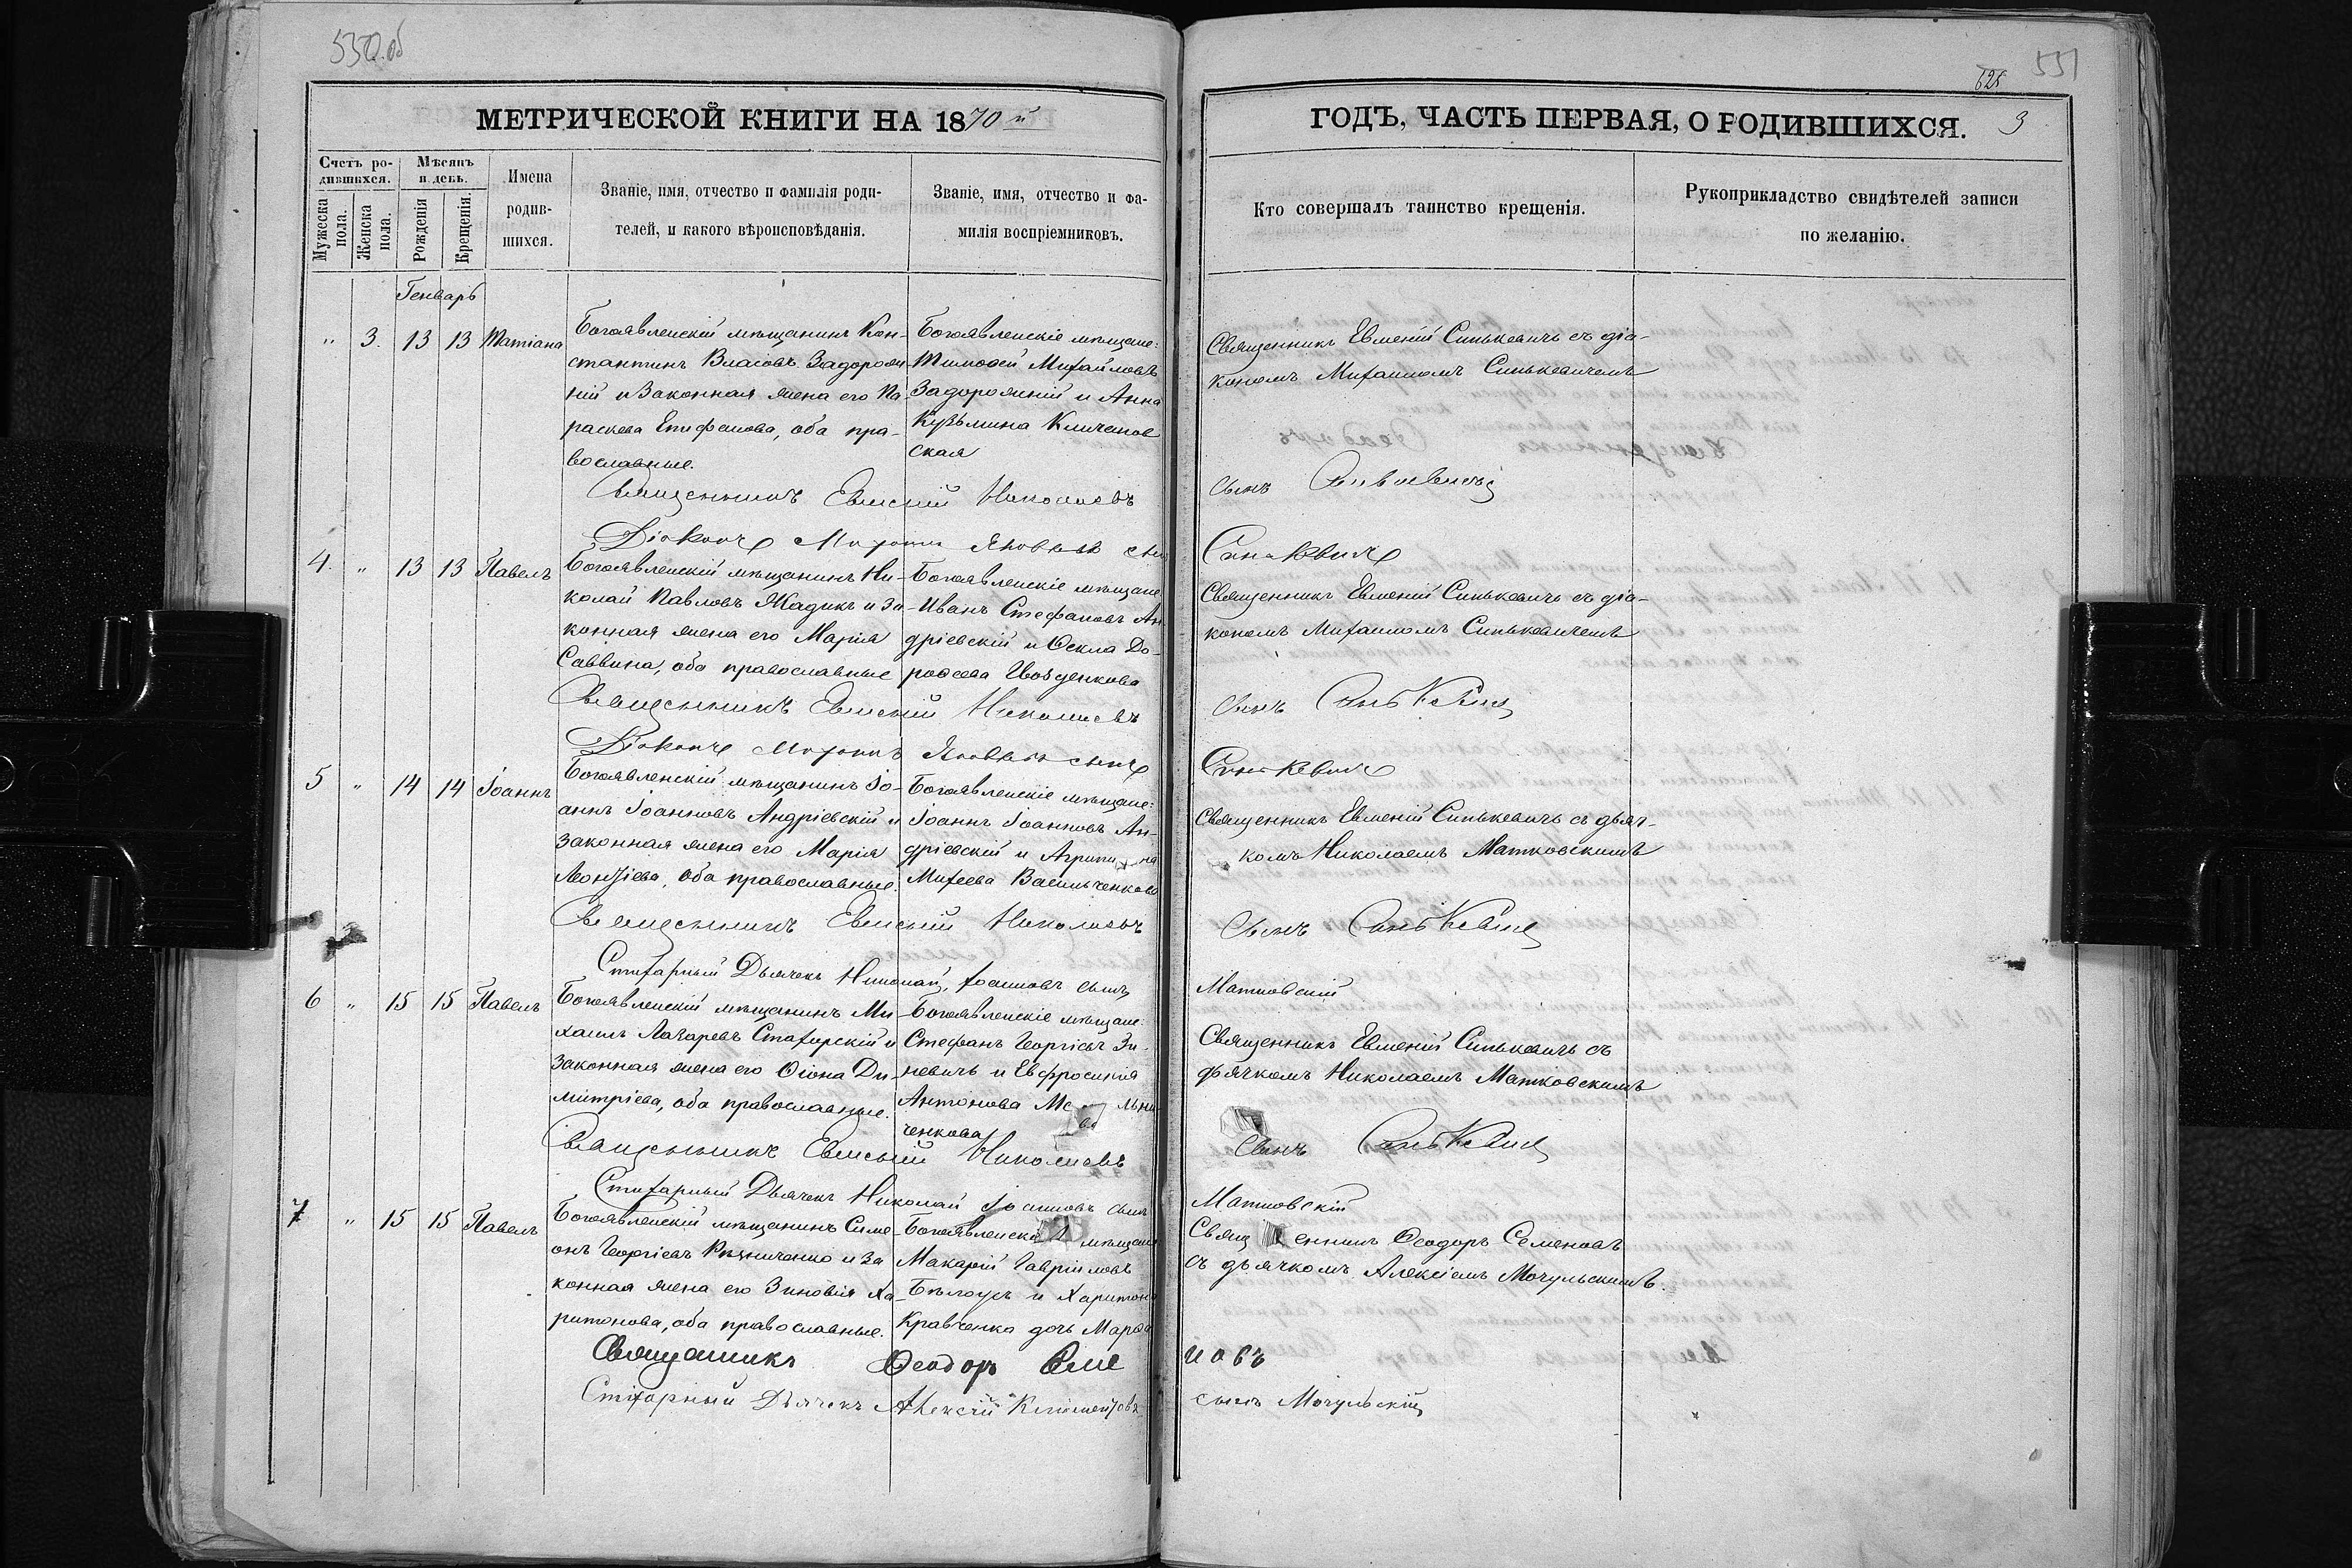 550 об
551
625
МЕТРИЧЕСКОЙ КНИГИ НА 1870 й
ГОДЪ, ЧАСТЬ ПЕРВАЯ, О РОДИВШИХСЯ. 3
Счетъ ро-
дившихся.
Мужеска
пола.
Женска
пола.
Мѣсяцъ
и день.
Рожденія
Крещенія.
Имена
родив-
шихся.
Званіе, имя, отчество и фамилія роди-
телей, и какого вѣроисповѣданія.
Званіе, имя, отчество и фа-
милія воспріемниковъ.
Кто совершалъ таинство крещенія.
Рукоприкладство свидѣтелей записи
по желанію.
Генварь
" 3. 13 13 Татіана
Богоявленскій мѣщанинъ Кон-
стантинъ Власовъ Задорож
ній и Законная жена его Па-
раскева Епифанова, оба пра-
вославные.
Богоявленскіе мѣщане:
Тимоѳей Михайловъ
Задорожній и Анна
Кузьмина Кличанов
ская
Священникъ Евменій Синькевичъ съ діа-
кономъ Михаиломъ Синькевичемъ
Священникъ Евменій Николаевъ
сынъ Синькевичъ
Діаконъ Михаилъ Яковлевъ сынъ
Синькевичъ
4. " 13 13 Павелъ
Богоявленскій мѣщанинъ Ни-
колай Павловъ Жадикъ и За-
конная жена его Марія
Саввина, оба православные
Богоявленскіе мѣщане
Иванъ Стефановъ Ан
дріевскій и Ѳекла До-
роѳеева Гвозденкова
Священникъ Евменій Синькевичъ съ діа-
кономъ Михаиломъ Синькевичемъ
Священникъ Евменій Николаевъ
сынъ Синькевичъ
Діаконъ Михаилъ Яковлевъ сынъ
Синькевичъ
5 " 14 14 Іоаннъ
Богоявленскій мѣщанинъ Іо-
аннъ Іоанновъ Андріевскій и
законная жена его Марія
Леонтіева, оба православные.
Богоявленскіе мѣщане:
Іоаннъ Іоанновъ Ан-
дріевскій и Агрипина
Михеева Васильченкова
Священникъ Евменій Синькевичъ съ дьяч-
комъ Николаемъ Матковскимъ
Священникъ Евменій Николаевъ
сынъ Синькевичъ
Стихарный Дьячекъ Николай Іоанновъ сынъ
Матковскій
6 " 15 15 Павелъ
Богоявленскій мѣщанинъ Ми-
хаилъ Лазаревъ Стахорскій и
Законная жена его Ѳіона Ди-
митріева, оба православные.
Богоявленскіе мѣщане:
Стефанъ Георгіевъ Зи-
невичъ и Евфросинія
Антонова Мельни
ченкова
Священникъ Евменій Синькевичъ съ
дьячкомъ Николаемъ Матковскимъ
Священникъ Евменій Николаевъ
сынъ Синькевичъ
Стихарный Дьячекъ Николай Іоанновъ сынъ
Матковскій
7 " 15 15 Павелъ
Богоявленскій мѣщанинъ Симе-
онъ Георгіевъ Рѣзниченко и за
конная жена его Зиновія Ха-
ритонова, оба православные.
Богоявленскі мѣщане
Макарій Гавріиловъ
Бѣлоусъ и Харитона
Кравченка дочь Марѳа
Священникъ Ѳеодоръ Семеновъ
съ дьячкомъ Алексіемъ Мочульскимъ.
Священникъ Ѳеодоръ Семе
новъ
Стихарный Дьячекъ Алексій Климентовъ
сынъ Мочульскій